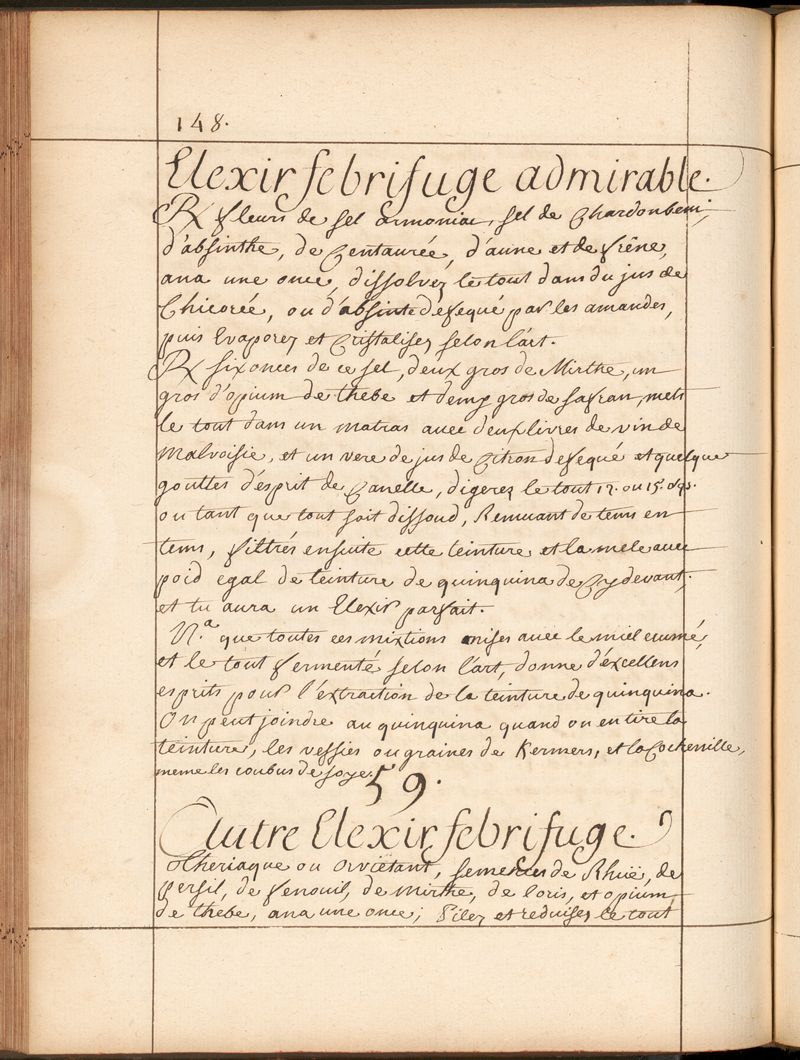 148.
Elexir febrifuge admirable.
℞ fleurs de sel armoniac, sel de Chardonbeni,
d'absinthe, de Centaurée, d'aune et de frêne,
ana une once, dissolvez le tout dans du jus de
Chicorée, ou d'absinte defequé par les amandes,
puis Evaporez et Cristalisez selon l'art.
℞ six onces de ce sel, deux gros de Mirthe, un
gros d'opium de thebe et demy gros de safran, mets
le tout dans un matras avec deux livres de vin de
Malvoisie, et un vere de jus de Citron defequé et quelque
gouttes d'esprit de Canelle, digerez le tout 12. ou 15.
ou tant que tout soit dissoud, Remuant de tems en
tems, filtrés ensuite cette teinture et la mele avec
poid egal de teinture de quinquina de Cy devant,
et tu aura un Elexir parfait.
N.ª que toutes ces mixtions mises avec le miel ecumé,
et le tout fermenté selon l'art, donne d'excellens
esprits pour l'extraction de la teinture de quinquina.
On peut joindre au quinquina quand on en tire la
teinture, les vessies ou graines de Kermers, et la Cochenille,
meme les coubus de soye.
59.
Autre Elexir febrifuge.
Theriaque ou orvietant, semences de Rhuë, de
persil, de fenouil, de Mirthe, de loris, et opium
de thebe, ana une once; Pilez et reduisez le tout